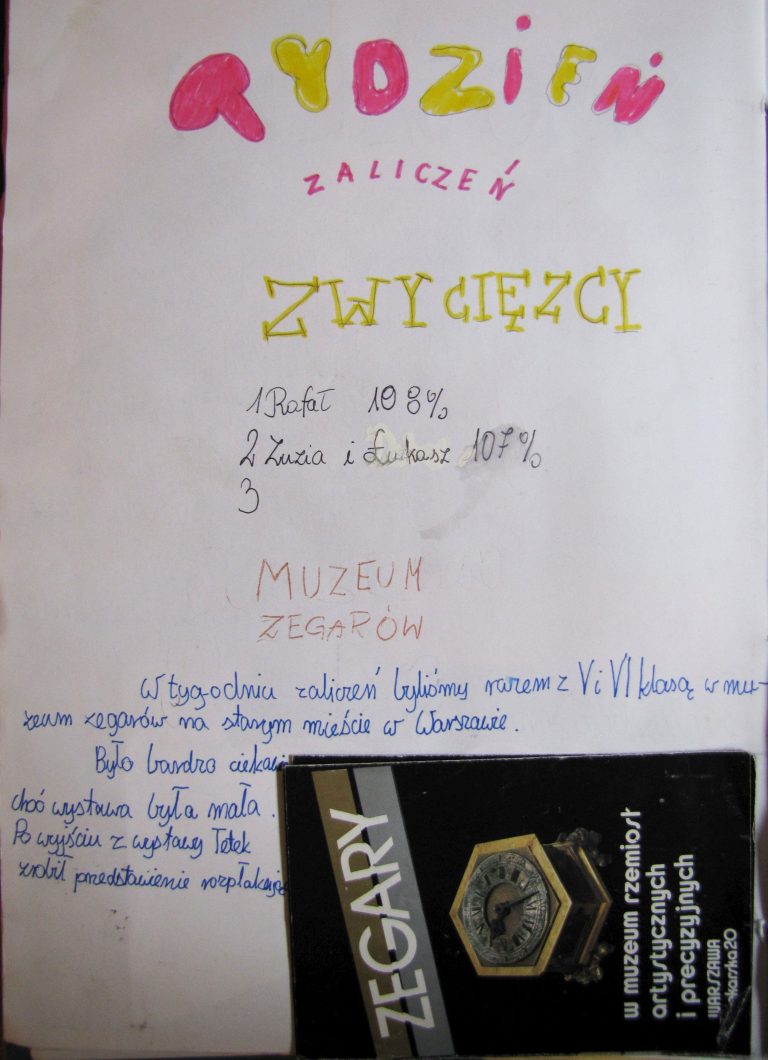 TYDZIEŃ
ZALICZEŃ
ZWYCIĘZCY
1 Rafał 108%
2 Zuzia i Łukasz 107%
3
MUZEUM
ZEGARÓW
W tygodniu zaliczeń byliśmy razem z V i VI klasą w mu-
zeum zegarów na starym mieście w Warszawie.
Było bardzo ciekawi
choć wystawa była mała.
Po wyjściu z wystawy Tetek
zrobił przedstawienie rozpłakując
ZEGARY
w muzeum rzemiosł
artystycznych
i precyzyjnych
WARSZAWA
karska 20